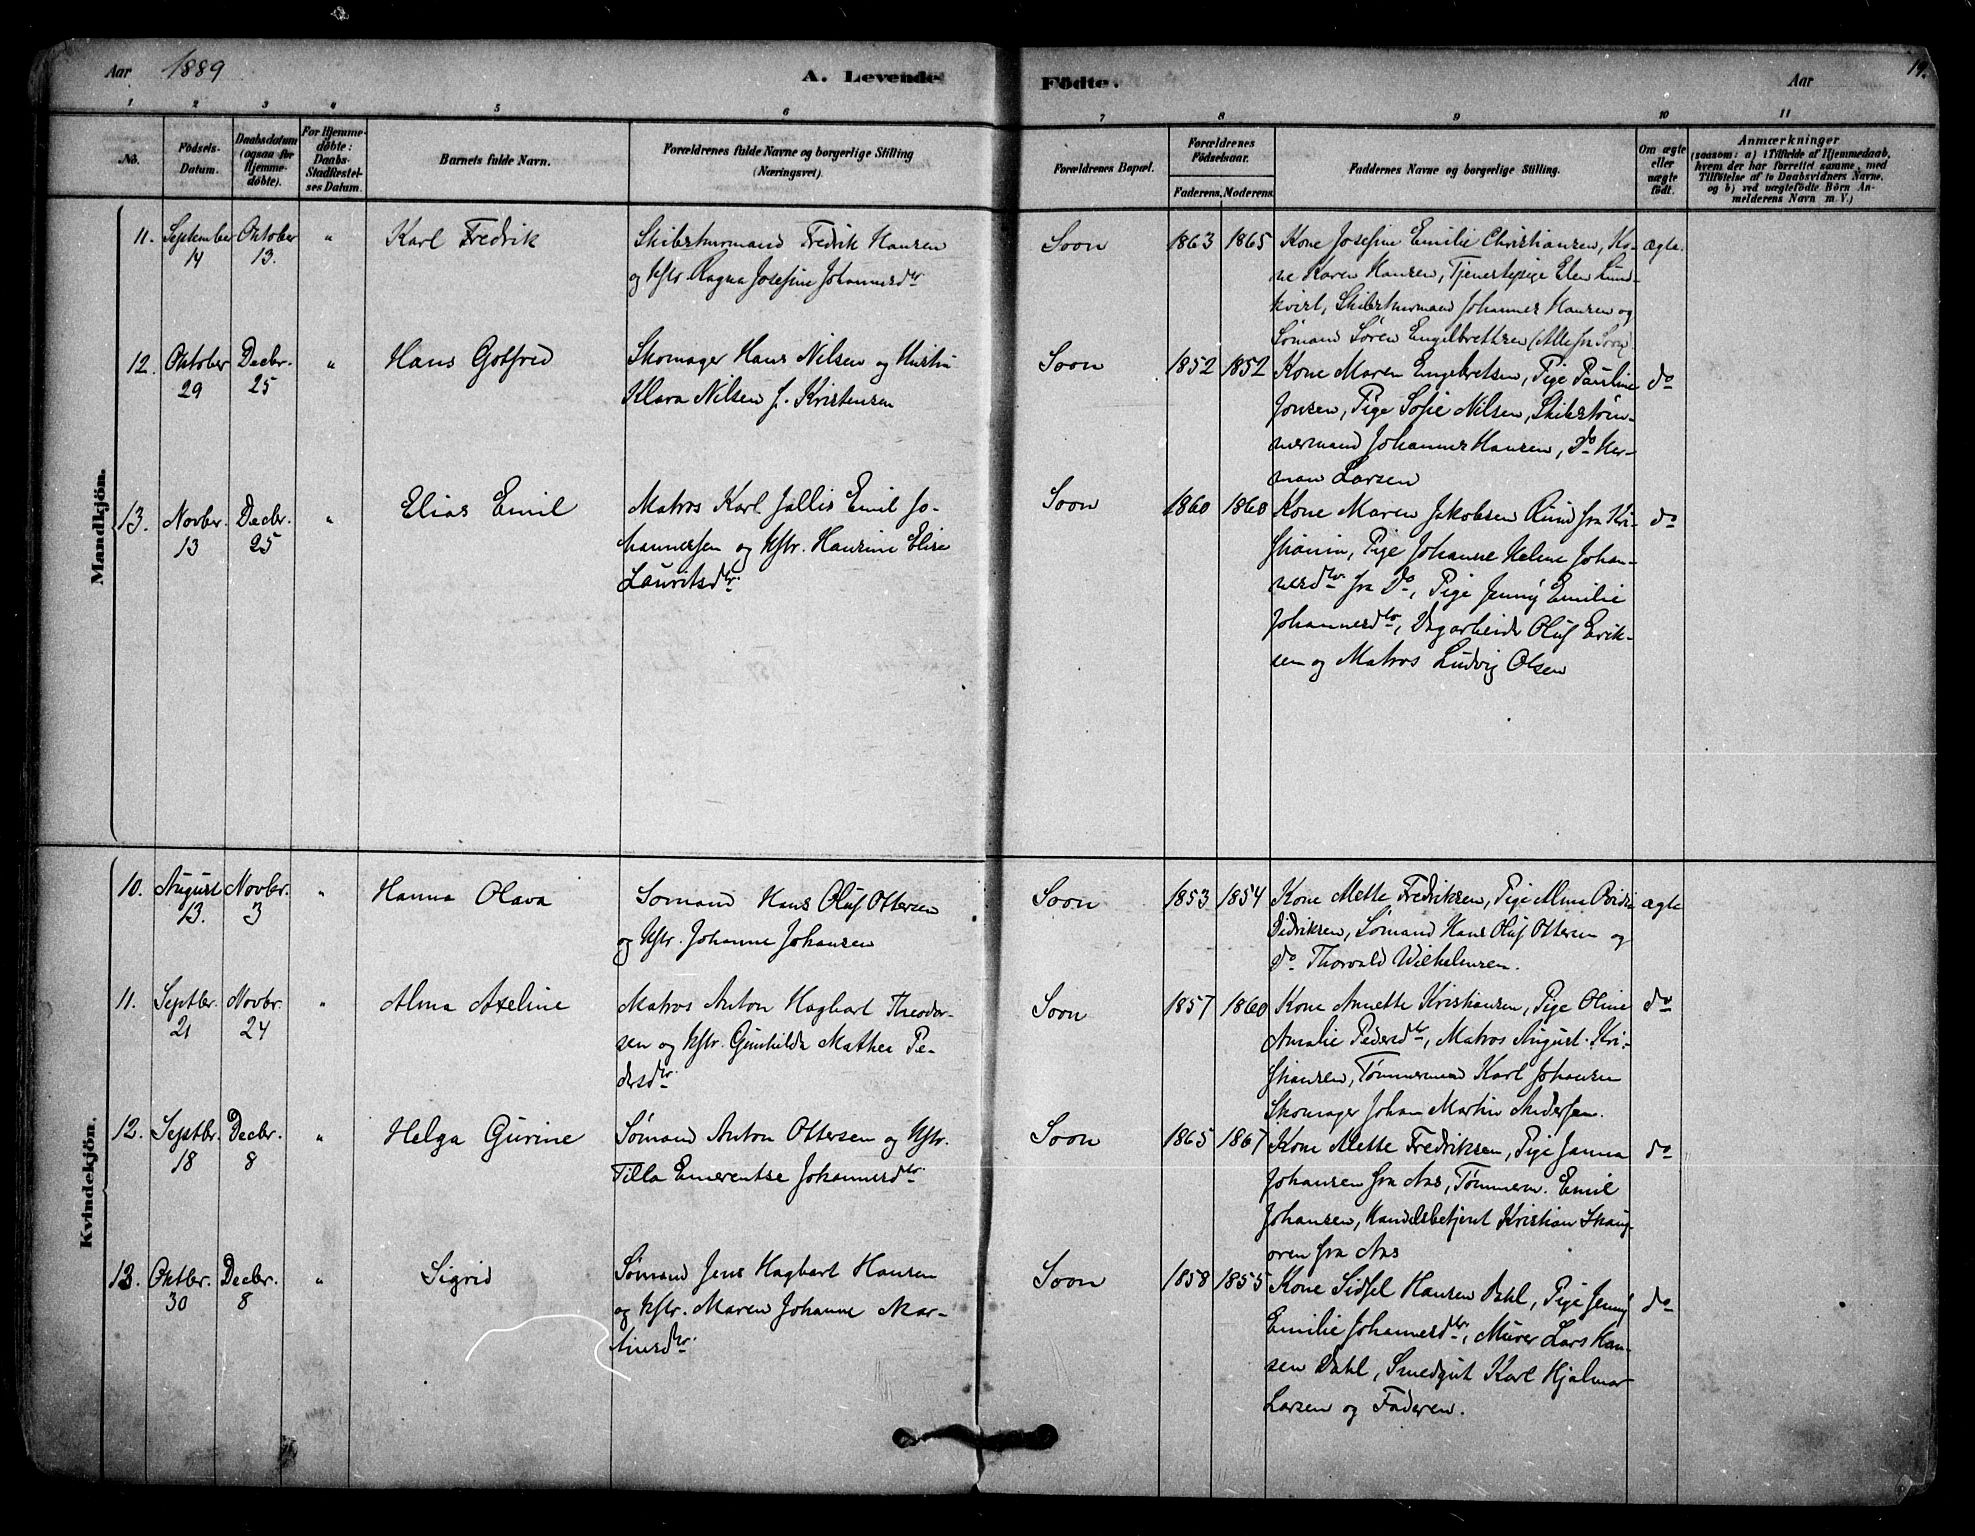 Aar 1889 A. Levende Födte. Aar 19.
1 2 3 4 5 6 7 8 9 10 11
No.
Födsels-
Datum.
Daabsdatum
(ogsaa for
Hjemme-
döbte).
For Hjemme-
döbte:
Daabs-
Stadfæstel-
ses Datum.
Barnets fulde Navn.
Forældrenes fulde Navne og borgerlige Stilling
(Næringsvei).
Forældrenes Bopæl.
Forældrenes
Födselsaar.
Faderens. Moderens.
Faddernes Navne og borgerlige Stilling.
Om ægte
eller
uægte
födt.
Anmærkninger
(saasom: a) i Tilfælde af Hjemmedaab,
hvem der har forrettet samme, med
Tilföielse af to Daabsvidners Navne,
og b) ved uægtefödte Börn An-
melderens Navn m. V.)
Mandkjön.
11.
September
14
Oktober
13.
"
Karl Fredrik
Skibstømmermand Fredrik Hansen
og Hstr. Ragna Josefine Johannesdtr
Soon
1863 1865
Kone Josefine Emilie Christiansen, Ko-
ne Karen Hansen, Tjenestepige Elen Lund-
kvist, Skibstømmermand Johannes Hansen og
Sømand Søren Engelbrettsen (Alle fra Soon)
ægte.
12.
Oktober
29
Decbr.
25
"
Hans Gotfred
Skomager Hans Nilsen og Hustru
Klara Nilsen f. Kristensen
Soon
1852 1852
Kone Maren Engebretsen, Pige Pauline
Jonsen, Pige Sofie Nilsen, Skibstøm-
mermand Johannes Hansen, do Her-
man Larsen
do
13.
Novbr.
13
Decbr.
25
"
Elias Emil
Matros Karl Jallis Emil Jo-
hannessen og Hstr. Hansine Elise
Lauritsdtr.
Soon
1860 1860
Kone Maren Jakobsen Rund fra Kri-
stiania, Pige Johanne Helene Johan-
nesdtr fra do, Pige Jenny Emilie
Johannesdtr, Dagarbeider Oluf Erik-
sen og Matros Ludvig Olsen
do
Kvindekjön.
10.
August
13.
Novbr.
3
"
Hanna Olava
Sømand Hans Oluf Ottersen
og Hstr. Johanne Johansen
Soon
1853 1854
Kone Mette Fredriksen, Pige Alma Ovidia
Didriksen, Sømand Hans Oluf Ottersen og
do. Thorvald Wilhelmsen.
ægte
11.
Septbr.
21
Novbr.
24
"
Alma Axeline
Matros Anton Hagbart Theodor-
sen og Hstr. Gunhilda Mathea Pe-
dersdtr.
Soon
1857 1860
Kone Annette Kristiansen, Pige Oline
Amalie Pedersdtr, Matros August Kri-
stiansen, Tømmermand Karl Johansen
Skomager Johan Martin Andersen.
do
12.
Septbr.
18
Decbr.
8
"
Helga Gurine
Sømand Anton Ottersen og Hstr.
Tilla Emerentse Johannesdtr.
Soon
1865 1867
Kone Mette Fredriksen, Pige Janna
Johansen fra Aas, Tømmerm. Emil
Johansen, Handelsbetjent Kristian Skaug-
oren fra Aas
do
13.
Oktbr.
30
Decbr.
8
"
Sigrid
Sømand Jens Hagbart Hansen
og Hstr. Maren Johanne Mar-
tinsdtr.
Soon
1858 1855
Kone Sidsel Hansen Dahl, Pige Jenny
Emilie Johannesdtr, Murer Lars Han-
sen Dahl, Smedgut Karl Hjalmar
Larsen og Faderen.
do